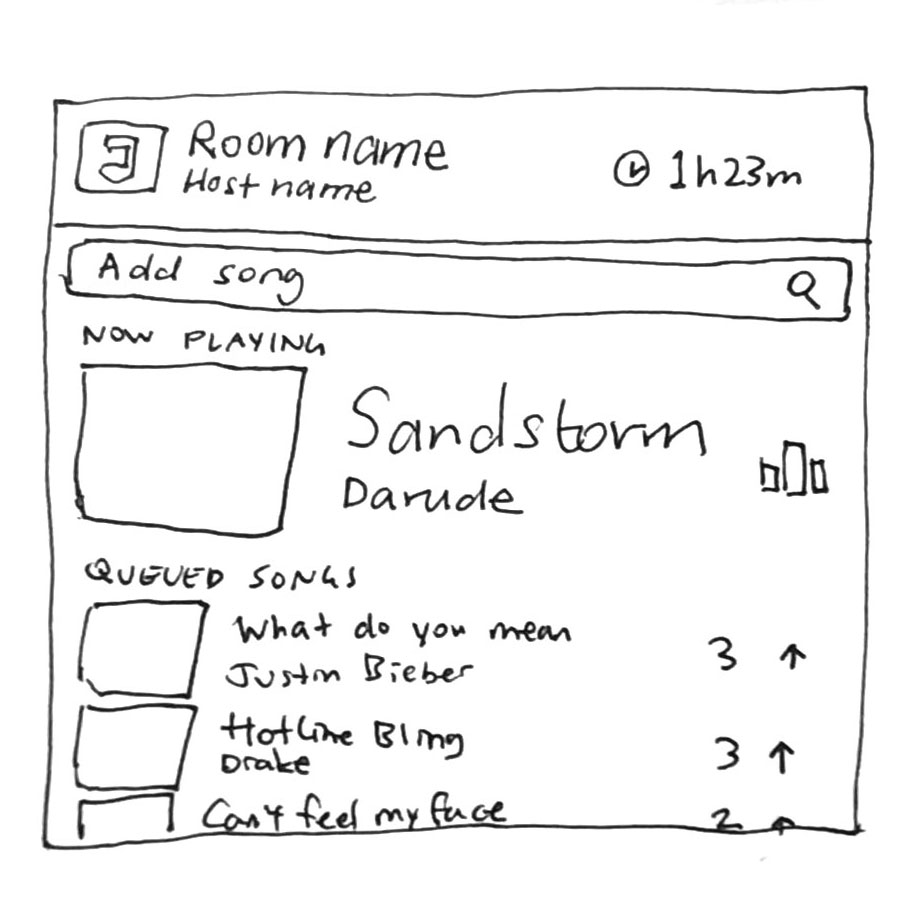 Room name
Host name
1h23m
Add song
NOW PLAYING
Sandstorm
Darude
QUEUED SONGS
What do you mean
Justin Bieber
3 ↑
Hotline Bling
Drake
3 ↑
Can't feel my face
2 ↑